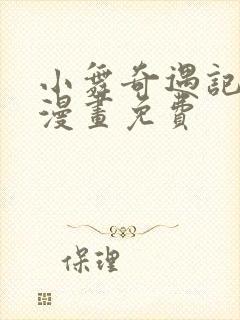 小舞奇遇記
漫畫免費
保理